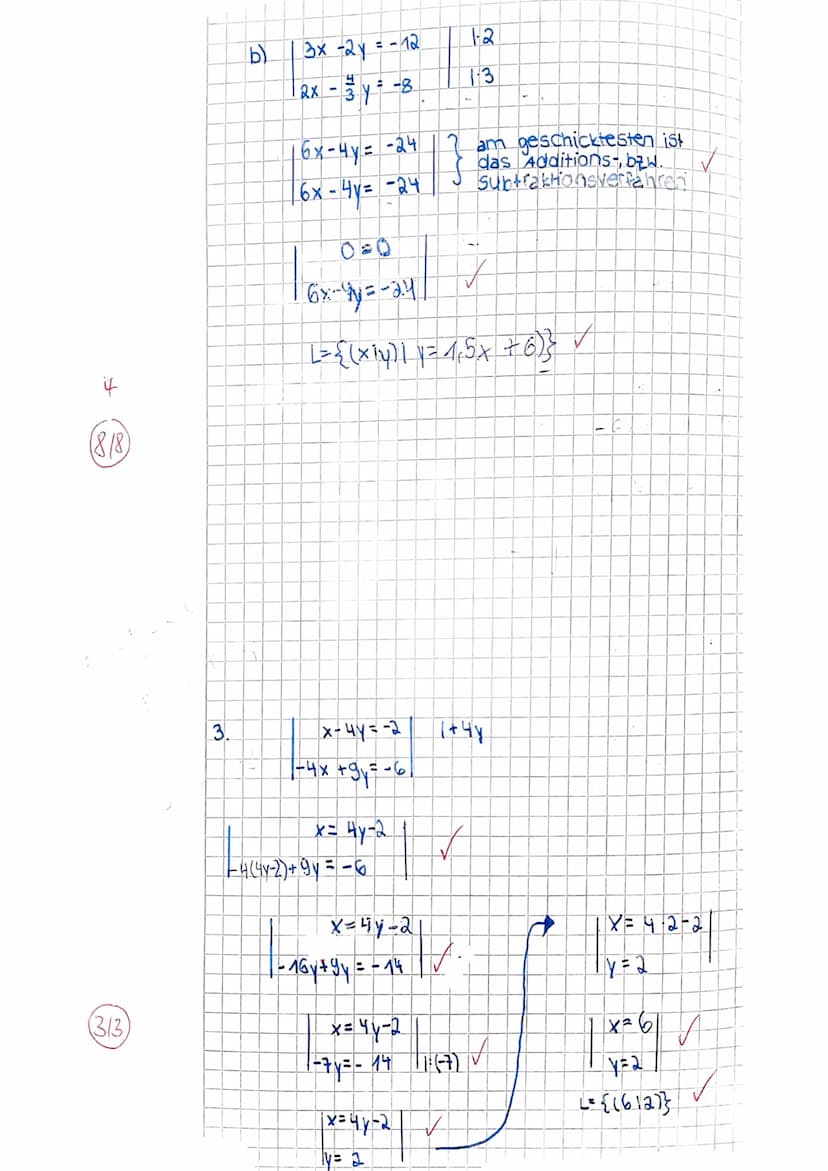 b) | 3x - 2y = -12 | |·2
| 2x - 4/3 y = -8 | |·3
| 6x - 4y = -24 | } am geschicktesten ist
das Additions-, bzw. ✓
| 6x - 4y = -24 | Subtraktionsverfahren
| 0 = 0 |
| 6x - 4y = -24 | ✓
L={(x|y)| y = 1,5x + 6)} ✓
4
8/8
3. | x - 4y = -2 | |+4y
| -4x + 9y = -6 |
| x = 4y-2 | ✓
| -4(4y-2)+9y = -6 |
| x = 4y-2 |
| -16y+9y = -14 | ✓
3/3
| x = 4y-2 |
| -7y = -14 | |:(-7) ✓
| x = 4y-2 | ✓
| y = 2
| x = 4·2-2 |
| y = 2
| x = 6 | ✓
| y = 2 |
L={(6|2)} ✓